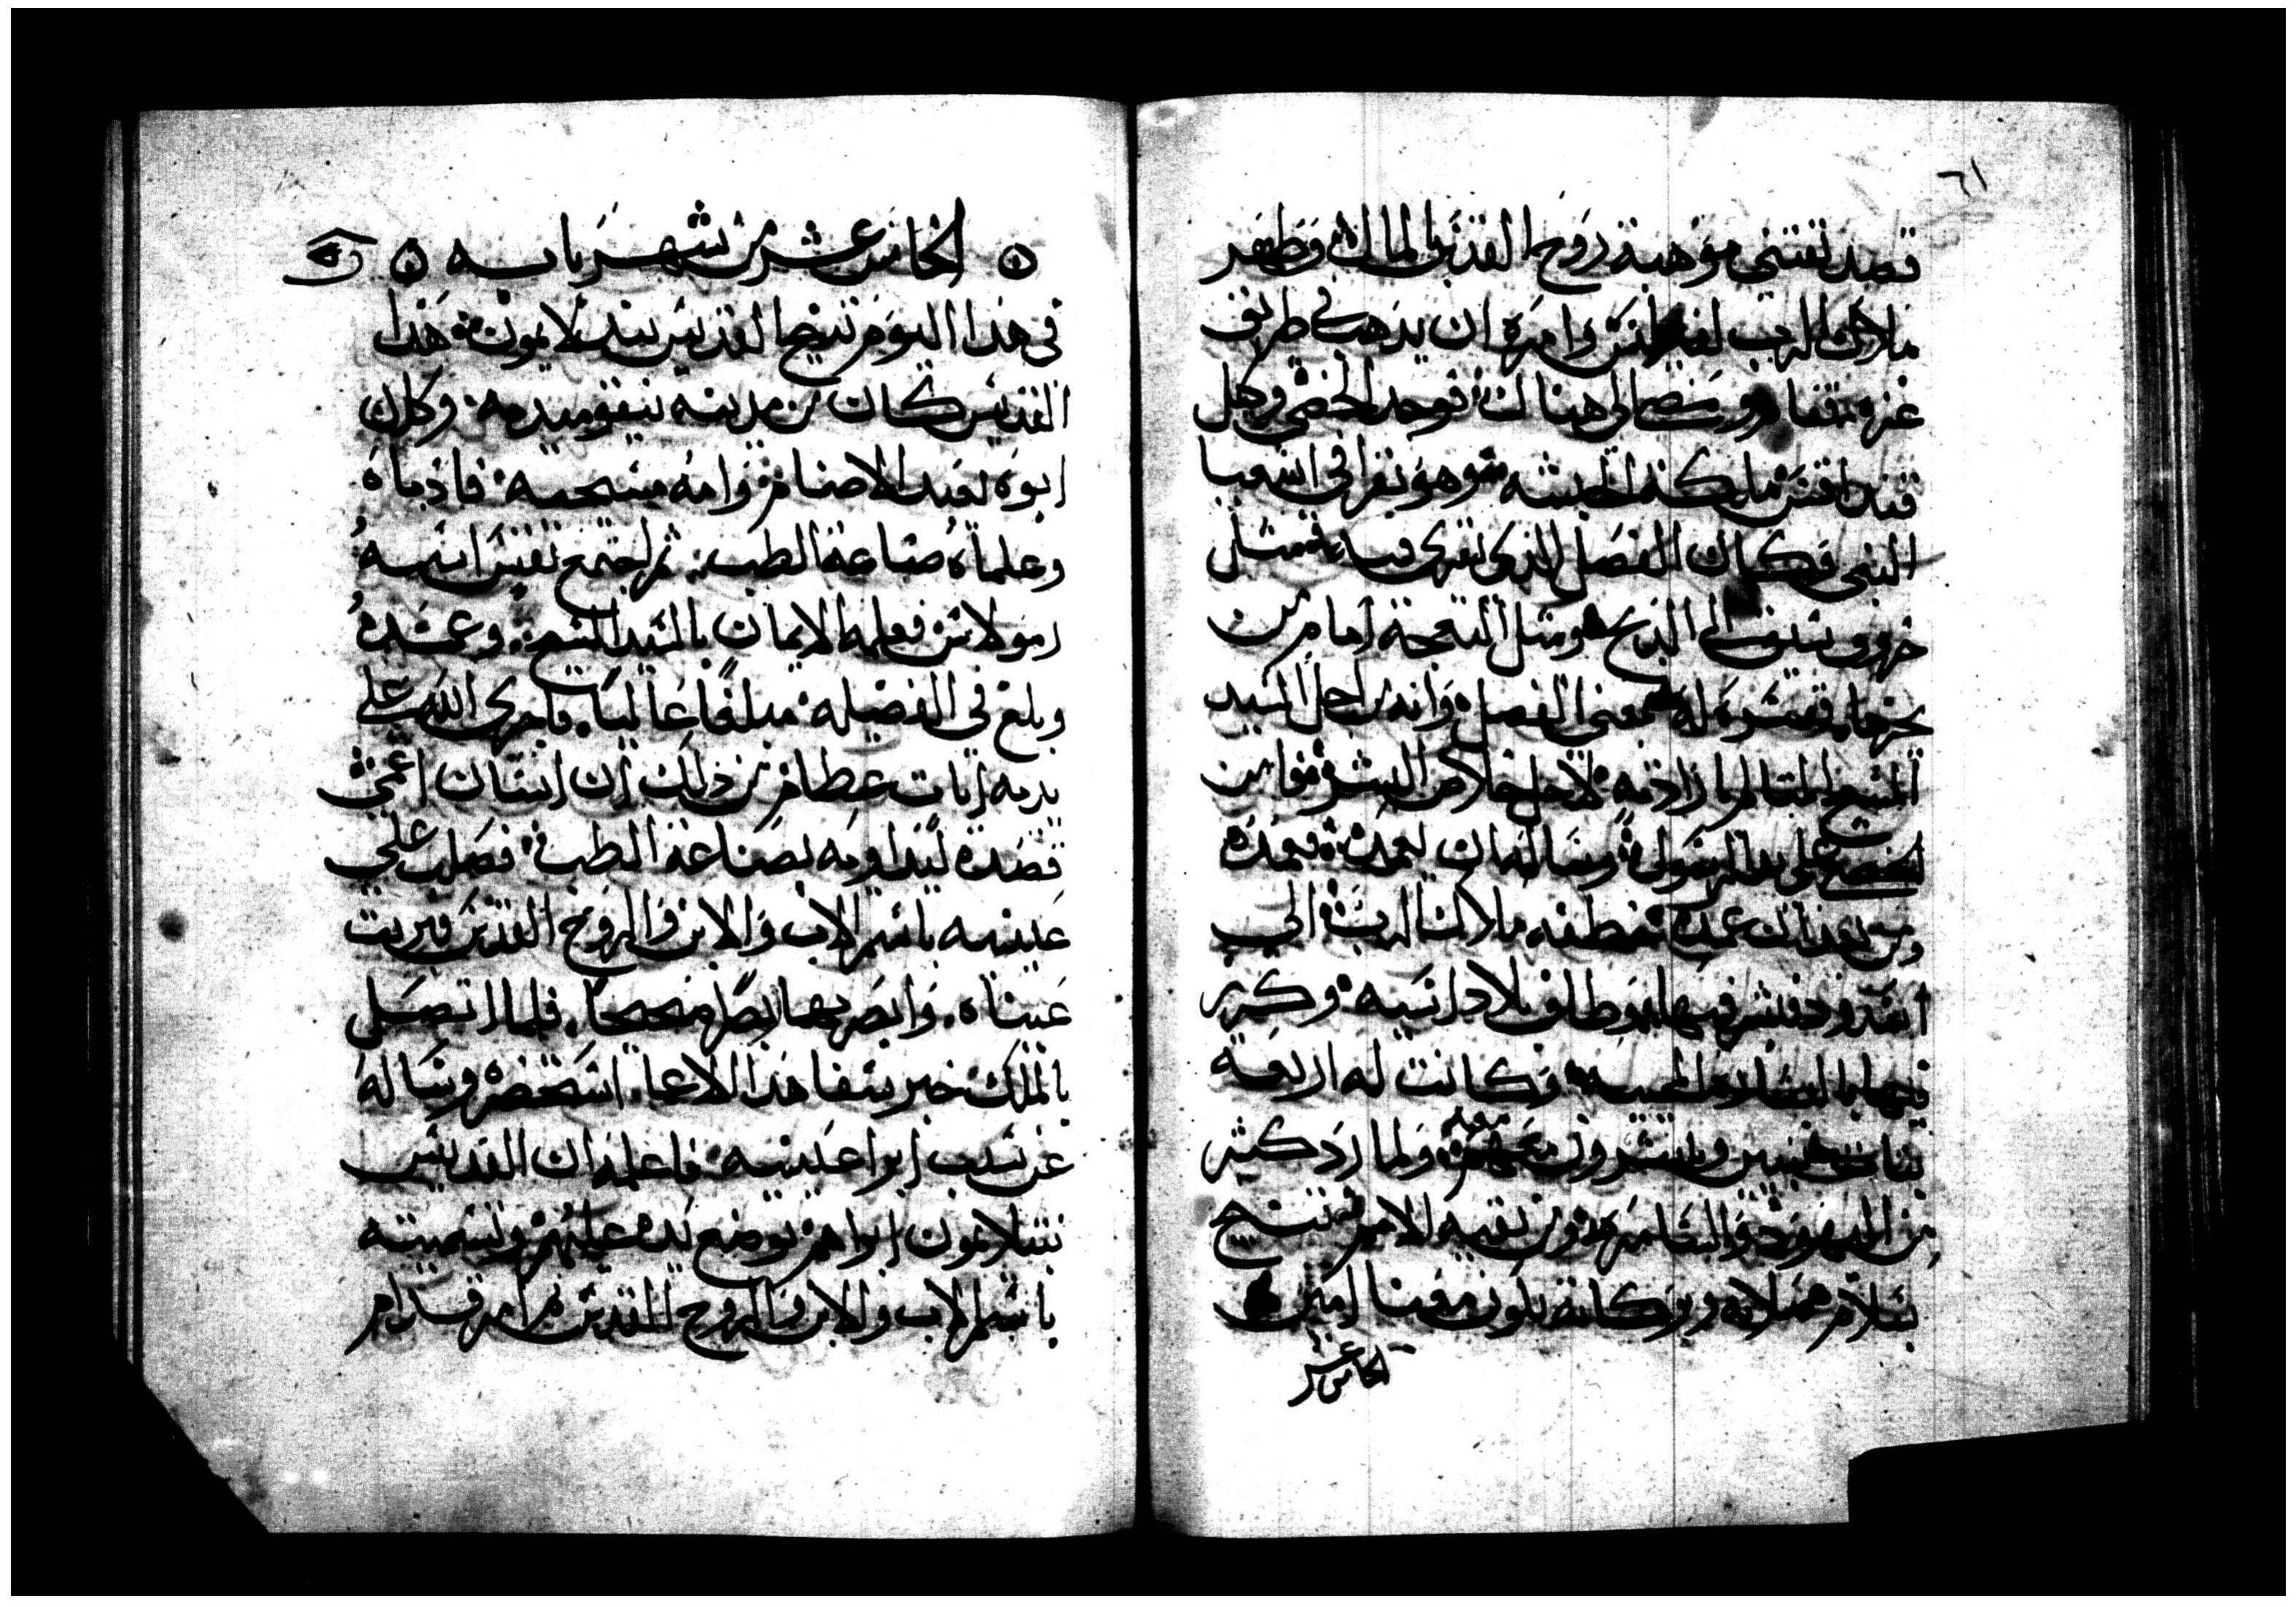 ٦١
قصد تقتنى موهبة روح القدس بالمال وظهر
ملاك الرب لفيلبس وامره ان يذهب فى طريق
غزه فمضا الى هناك فوجد الخصى وكيل
قنداقس ملكة الحبشه وهو يقرا فى اشعيا
النبى وكان الفصل الذى يقرى فيه مثل
خروف سيق الى الذبح ومثل النعجة امام من
يجزها ففسره له معنى الفصل وانه من اجل السيد
المسيح المتالم بارادته لاجل خلاص البشر فوامن
الخصى على يد الرسول وساله ان يعمده فعمده
ومن بعد ان عمده خطفه ملاك الرب الى
اشدود فبشر فيها وطاف بلاد اسيه وكرز
فيها بالبشاره المحييه وكانت له اربعة
بنات يبشرون معه ولما رد كثير
من اليهود والسامره ومن بقيه الامم تنيح
بسلام صلاته وبركاته تكون معنا امين
الخامس عشر
الخامس عشر من شهر بابه
فى هذا اليوم تنيح القديس بندلايمون هذا
القديس كان من مدينه نيقوميديه وكان
ابوه يعبد الاصنام وامه مسيحيه فادباه
وعلماه صناعة الطب ثم اجتمع بقس اسمه
رمولاس فعلمه الايمان بالسيد المسيح وعمده
وبلغ فى الفضيله مبلغاً عالياً فاجرى الله على
يديه ايات عظام من ذلك ان انسان اعمى
قصده ليداويه بصناعة الطب فصلب على
عينيه باسم الاب والابن والروح القدس فبريت
عيناه وابصر بهما بصراً صحيحاً فلما اتصل
بالملك خبر شفا هذا الاعما استحضره وساله
عن سبب ابرا عينيه فاعلمه ان القديس
بنتلايمون ابراهم بوضع يده عليهم وتسميته
باسم الاب والابن والروح القدس ثم امر قدام